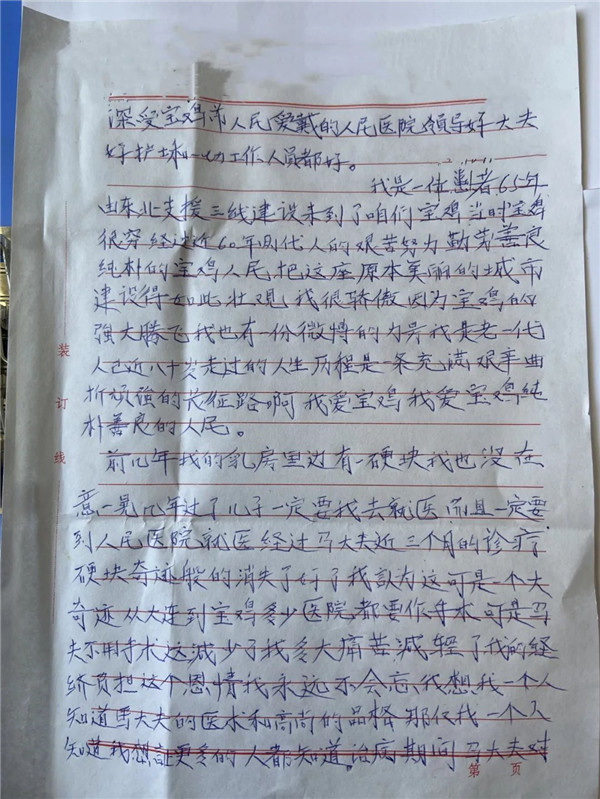 深受宝鸡市人民爱戴的人民医院领导好大夫
好护士好一切工作人员都好。
我是一伟患者65年
由东北支援三线建设来到了咱们宝鸡当时宝鸡
很穷经过近60年两代人的艰苦努力勤劳善良
纯朴的宝鸡人民,把这座原本美丽的城市
建设得如此壮观我很骄傲因为宝鸡的
强大腾飞我也有一份微博的力另我是老一代
人已近八十岁走过的人生历程是一条充满艰辛曲
折顽强的长征路啊我爱宝鸡我爱宝鸡纯
朴善良的人民。
前几年我的乳房里边有一硬块我也没在
意一晃几年过了儿子一定要我去就医而且一定要
到人民医院就医经过马大夫近三个月的诊疗
硬块奇迹般的消失了好了我认为这可是一个大
奇迹从大连到宝鸡多少医院都要作手术可是马
夫不用手术这减少了我多大痛苦减轻了我的经
济负担这个恩情我永远不会忘,我想我一个人
知道马大夫的医术和高尚的品格那仅我一个人
知道我想让更多的人都知道。治病期间马大夫对
装
订
线
第 页